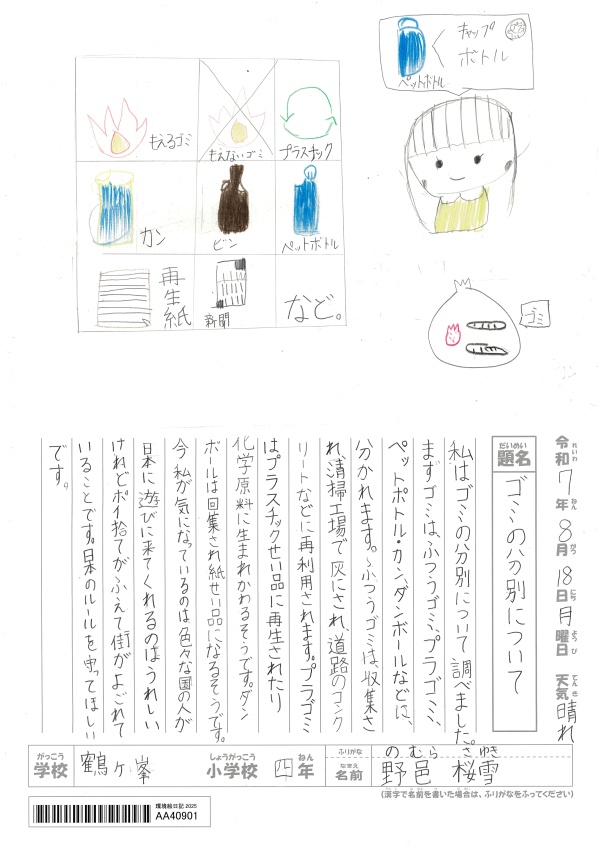 キャップ
ボトル
ペットボトル
もえるゴミ
もえないゴミ
プラスチック
カン
ビン
ペットボトル
再生紙
新聞
など。
ゴミ
令和7年8月18日月曜日 天気晴れ
れいわ ねん がつ にち ようび てんき
だいめい
題名
ゴミの分別について
私はゴミの分別について調べました。
まずゴミは、ふつうゴミ、プラゴミ、
ペットボトル・カン、ダンボールなどに、
分かれます。ふつうゴミは、収集さ
れ、清掃工場で灰にされ、道路のコンク
リートなどに再利用されます。プラゴミ
はプラスチックせい品に再生されたり
化学原料に生まれかわるそうです。ダン
ボールは回集され紙せい品になるそうです。
今私が気になっているのは色々な国の人が
日本に遊びに来てくれるのはうれしい
けれどポイ捨てがふえて街がよごれて
いることです。日本のルールを守ってほしい
です。
がっこう
学校
鶴ヶ峯
しょうがっこう
小学校
四
ねん
年
ふりがな
のむら さゆき
なまえ
名前
野邑 桜雪
(漢字で名前を書いた場合は、ふりがなをふってください)
環境絵日記2025
AA40901